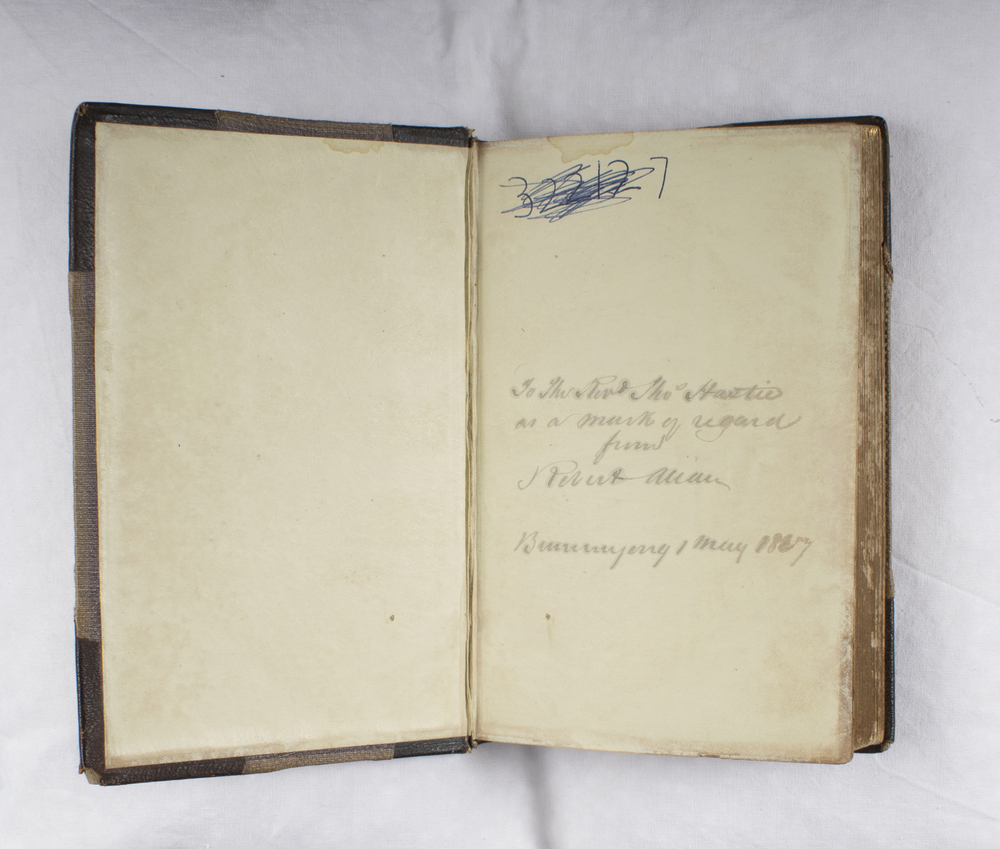 322127
To The Revd Thos Hastie
as a mark of regard
from
Robert Allan
Buninyong 1 May 1857